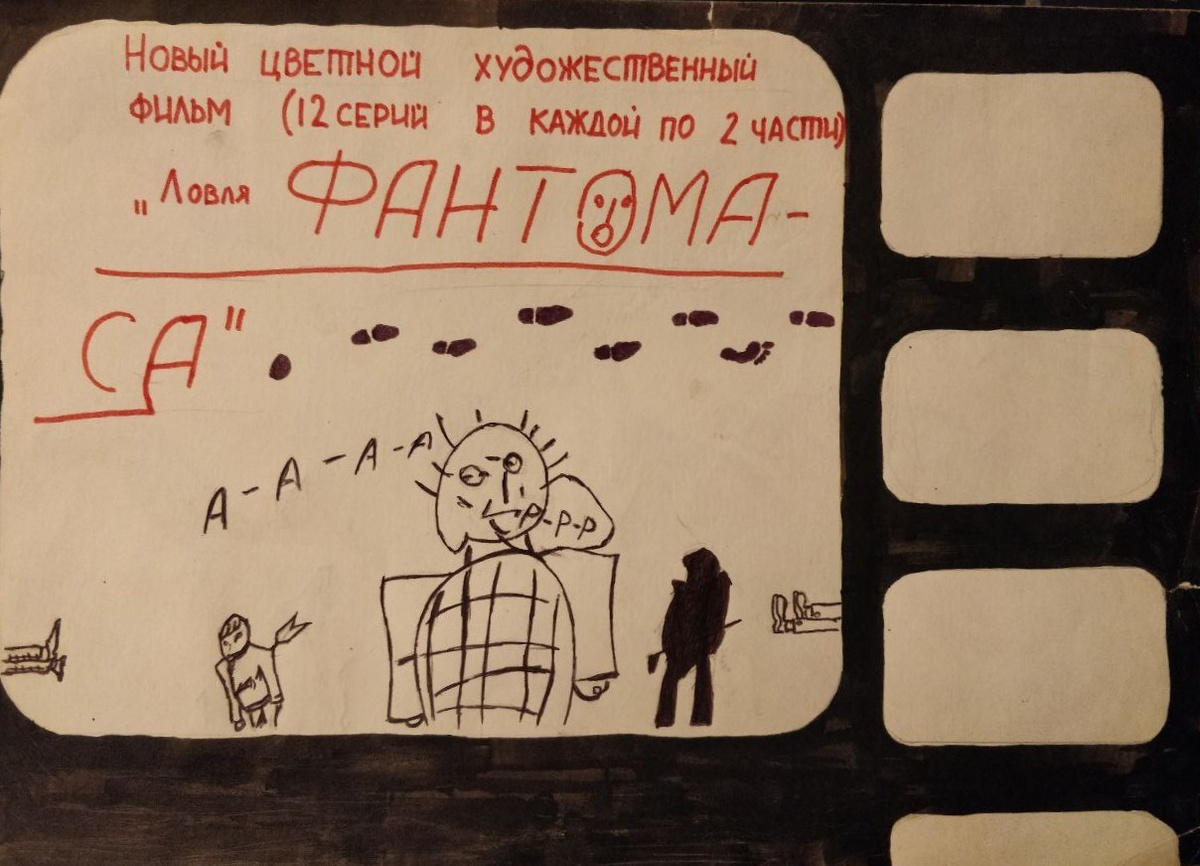 Новый цветной художественный
фильм (12 серий в каждой по 2 части)
„Ловля ФАНТОМА-
СА"
А-А-А-А
Р-Р-Р